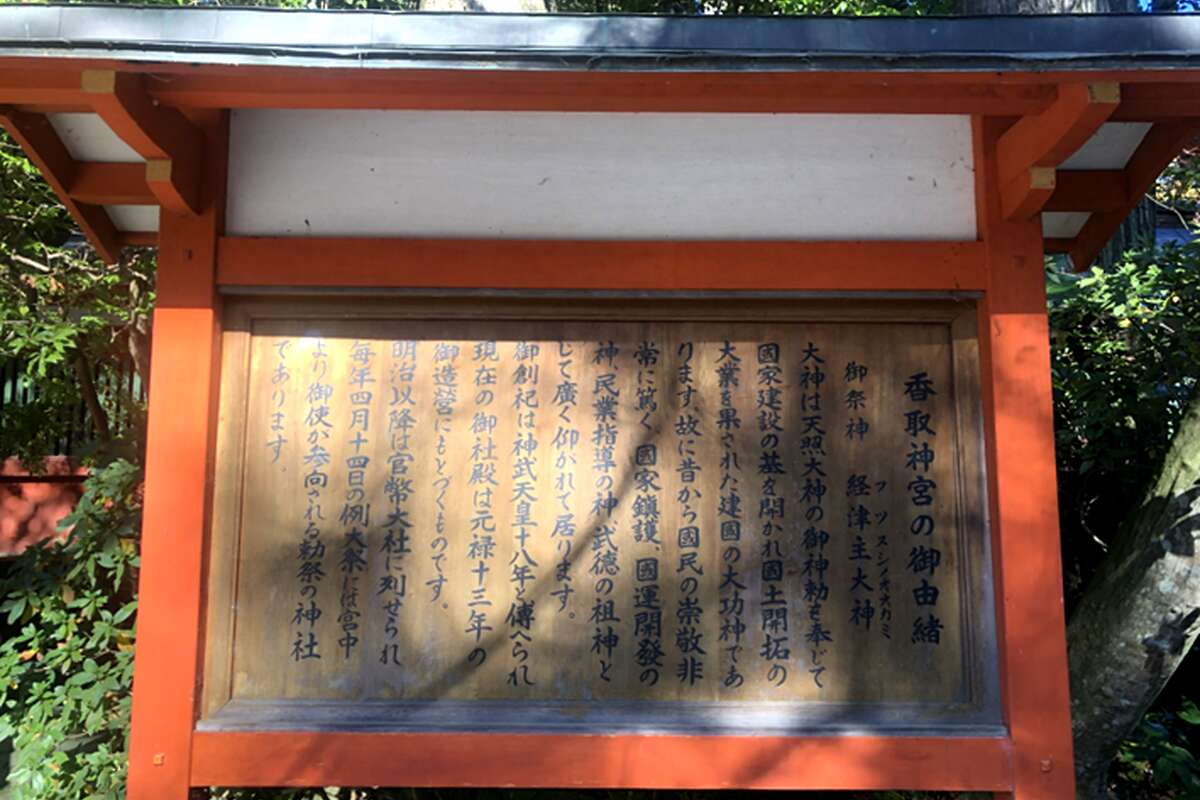 香取神宮の御由緒
御祭神 経津主大神
フツヌシノオオカミ
大神は天照大神の御神勅を奉じて
國家建設の基を開かれ國土開拓の
大業を果された建國の大功神であ
ります故に昔から國民の崇敬非
常に篤く、國家鎮護、國運開發の
神、民業指導の神、武徳の祖神と
して廣く仰がれて居ります。
御創祀は神武天皇十八年と傳へられ
現在の御社殿は元禄十三年の
御造営にもとづくものです。
明治以降は官幣大社に列せられ
毎年四月十四日の例大祭には宮中
より御使が参向される勅祭の神社
であります。